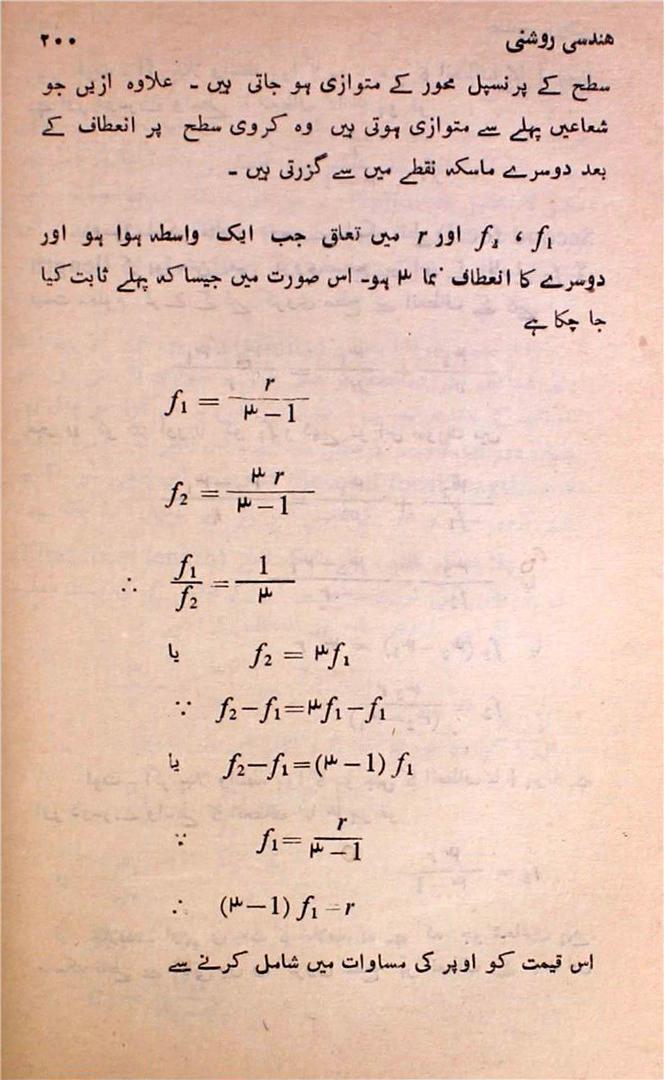 هندسی روشنی ۲۰۰
سطح کے پرنسپل محور کے متوازی ہو جاتی ہیں ۔ علاوہ ازیں جو
شعاعیں پہلے سے متوازی ہوتی ہیں وہ کروی سطح پر انعطاف کے
بعد دوسرے ماسکہ نقطے میں سے گزرتی ہیں ۔
f₁ ، f₂ اور r میں تعلق جب ایک واسطہ ہوا ہو اور
دوسرے کا انعطاف نما ۳ ہو۔ اس صورت میں جیسا کہ پہلے ثابت کیا
جا چکا ہے
f₁ = r / (۳ – 1)
f₂ = ۳ r / (۳ – 1)
∴ f₁ / f₂ = 1 / ۳
یا f₂ = ۳f₁
∵ f₂–f₁=۳f₁–f₁
یا f₂–f₁=(۳–1) f₁
∵ f₁= r / (۳–1)
∴ (۳–1) f₁ = r
اس قیمت کو اوپر کی مساوات میں شامل کرنے سے